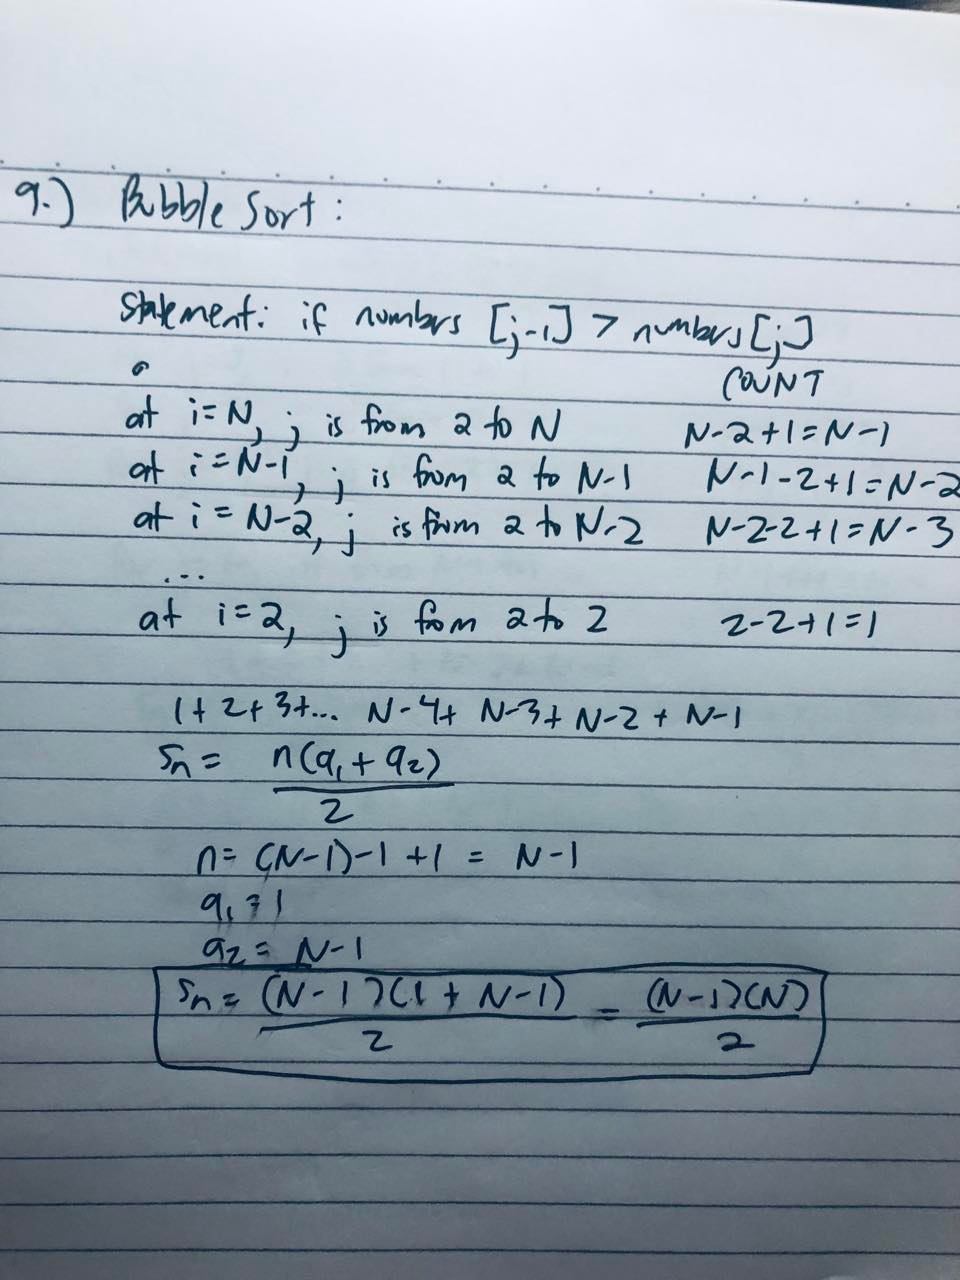 9.) Bubble Sort:
Statement: if numbers [j-1] > numbers[j]
COUNT
at i=N, j is from 2 to N N-2+1=N-1
at i=N-1, j is from 2 to N-1 N-1-2+1=N-2
at i=N-2, j is from 2 to N-2 N-2-2+1=N-3
...
at i=2, j is from 2 to 2 2-2+1=1
1+2+3+... N-4+ N-3+ N-2 + N-1
Sn = n(a1 + a2)
2
n= (N-1)-1 +1 = N-1
a1 = 1
a2 = N-1
Sn = (N-1)(1 + N-1) = (N-1)(N)
2 2